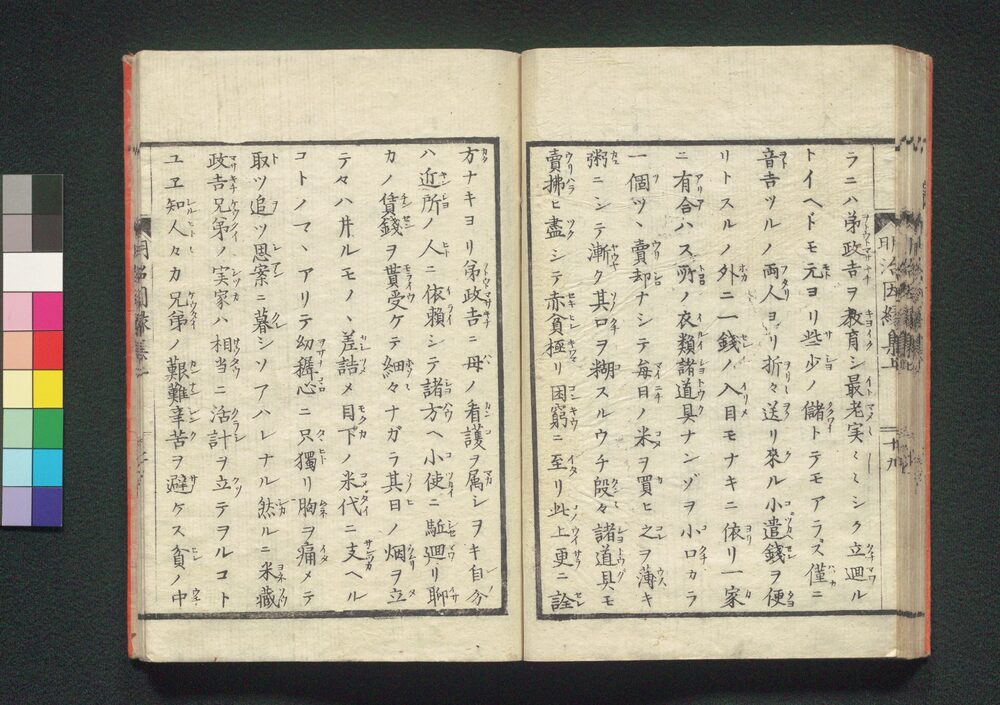 ラニハ弟政吉ヲ教育シ最老実〻〻シク立廻ル
トイヘドモ元ヨリ些少ノ儲トテモアラズ僅ニ
音吉ツルノ両人ヨリ折々送リ來ル小遣錢ヲ便
リトスルノ外ニ一錢ノ入目モナキニ依リ一家
ニ有合ハス所ノ衣類諸道具ナンゾヲ小口カラ
一個ツヽ賣却ナシテ毎日ノ米ヲ買ヒ之ヲ薄キ
粥ニシテ漸ク其口ヲ糊スルウチ段々諸道具モ
賣拂ヒ盡シテ赤貧極リ困窮ニ至リ此上更ニ詮
方ナキヨリ弟政吉ニ母ノ看護ヲ属シヲキ自分
ハ近所ノ人ニ依賴シテ諸方ヘ小使ニ駈廻リ聊
カノ賃錢ヲ貰受ケテ細々ナガラ其日ノ烟ヲ立
テヽハ井ルモノヽ差詰メ目下ノ米代ニ支ヘル
コトノマヽアリテ幼稚心ニ只獨リ胸ヲ痛メテ
取ツ追ツ思案ニ暮シソアハレナル然ルニ米藏
政吉兄弟ノ実家ハ相當ニ活計ヲ立テヲルコト
ユヱ知人々カ兄弟ノ艱難辛苦ヲ避ケス貧ノ中